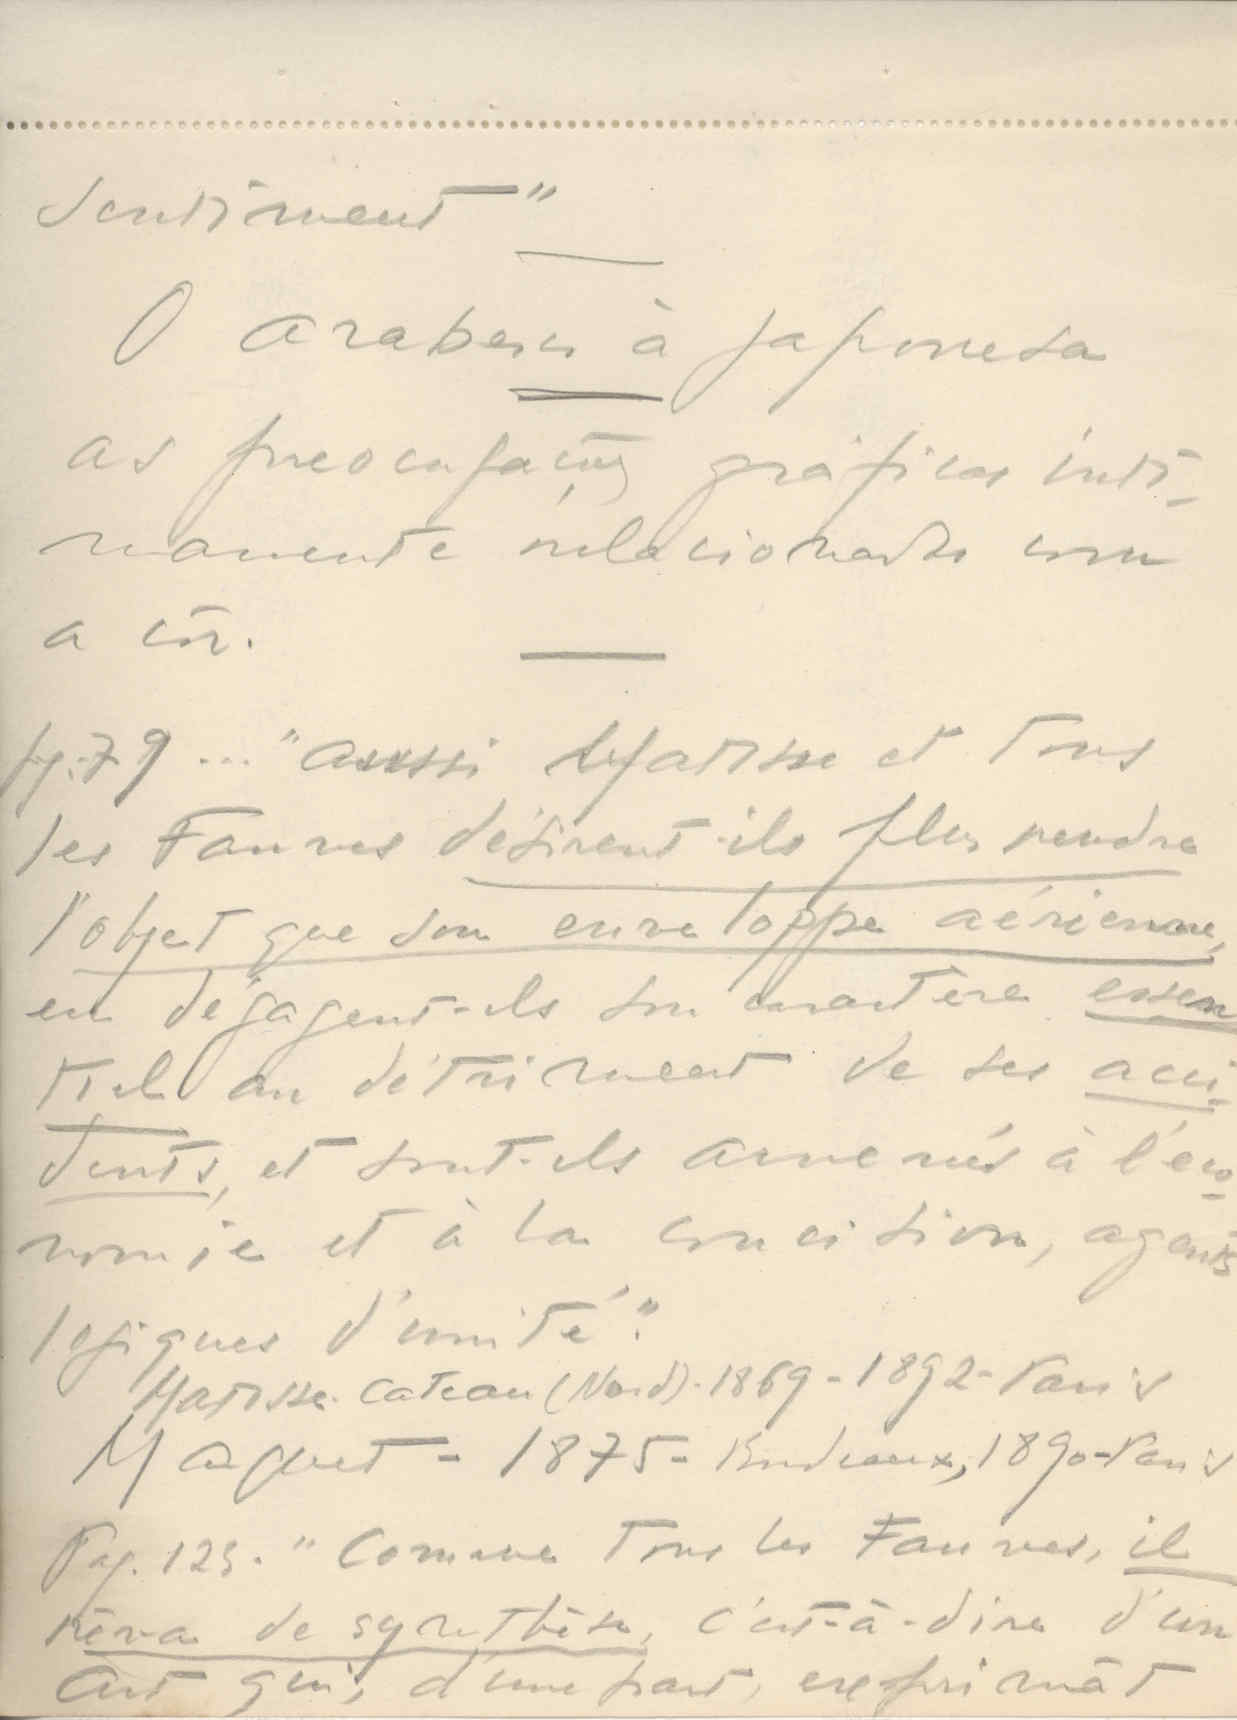 sentiment"
O arabesco à japonesa
as preocupações gráficas inti-
mamente relacionadas com
a côr.
pg. 79 ... "aussi Matisse et tous
les Fauves désirent-ils plus rendre
l'objet que son enveloppe aérienne,
en dégagent-ils son caractère essen
tiel au détriment de ses acci-
dents, et sont-ils amenés à l'éco-
nomie et à la concision, agents
logiques d'unité".
Matisse. Cateau (Nord). 1869 - 1892 - Paris
Marquet - 1875 - Bordeaux, 1890 - Paris
Pag. 123. "Comme tous les Fauves, il
rêva de synthèse, c'est-à-dire d'un
art qui, d'une part, exprimât